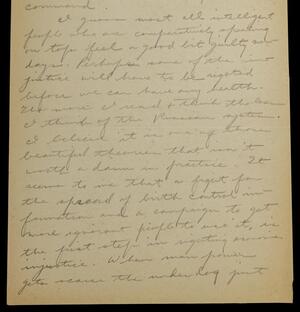 command.
I guess most all intelligent
people who are comparatively speaking
on top feel a good bit guilty now
days. Perhaps some of the in-
justice will have to be righted
before we can have any health.
The more I read & think the less
I think of the Russian system.
I believe it is one of those
beautiful theories that isn't
worth a damn in practice. It
seems to me that a fight for
the spread of birth control in-
formation and a campaign to get
more ignorant people to use it, is
the first step in righting
injustice. When man power
gets scarce the under dog just